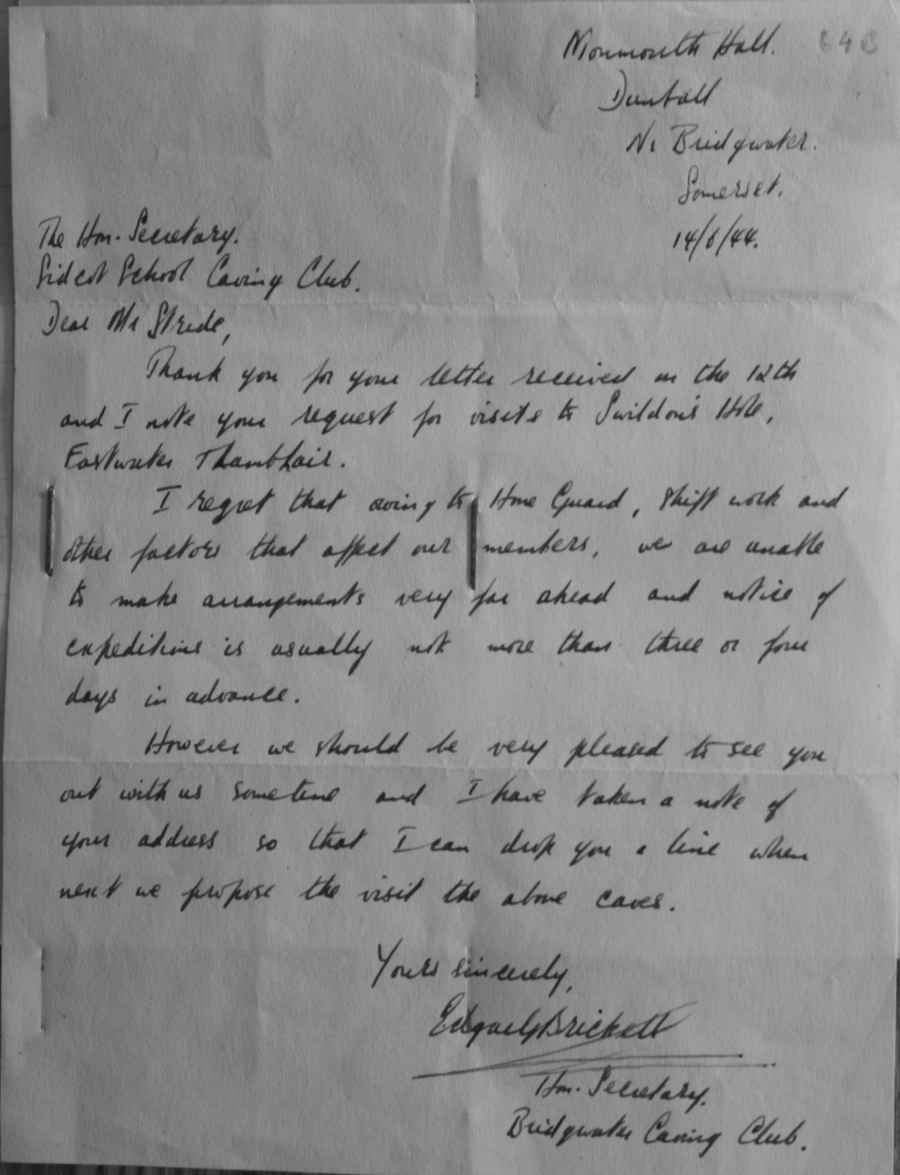 Monmouth Hall. 64B
Dunball
Nr Bridgwater.
Somerset.
14/6/44.
The Hon. Secretary.
Sidcot School Caving Club.
Dear Mr Stride,
Thank you for your letter received on the 12th
and I note your request for visits to Swildon's Hole,
Eastwater
I regret that owing to Home Guard, shift work and
other factors that affect our members, we are unable
to make arrangements very far ahead and notice of
expeditions is usually not more than three or four
days in advance.
However we should be very pleased to see you
out with us sometime and I have taken a note of
your address so that I can drop you a line when
next we propose the visit the above caves.
Yours sincerely,
Brickett
Hon. Secretary.
Bridgwater Caving Club.